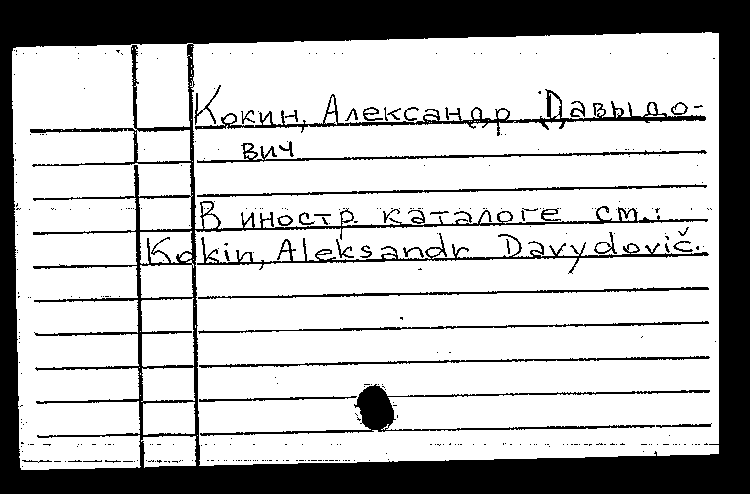 Кокин, Александр Давыдо-
вич
В иностр. каталоге см.:
Kokin, Aleksandr Davydovič.